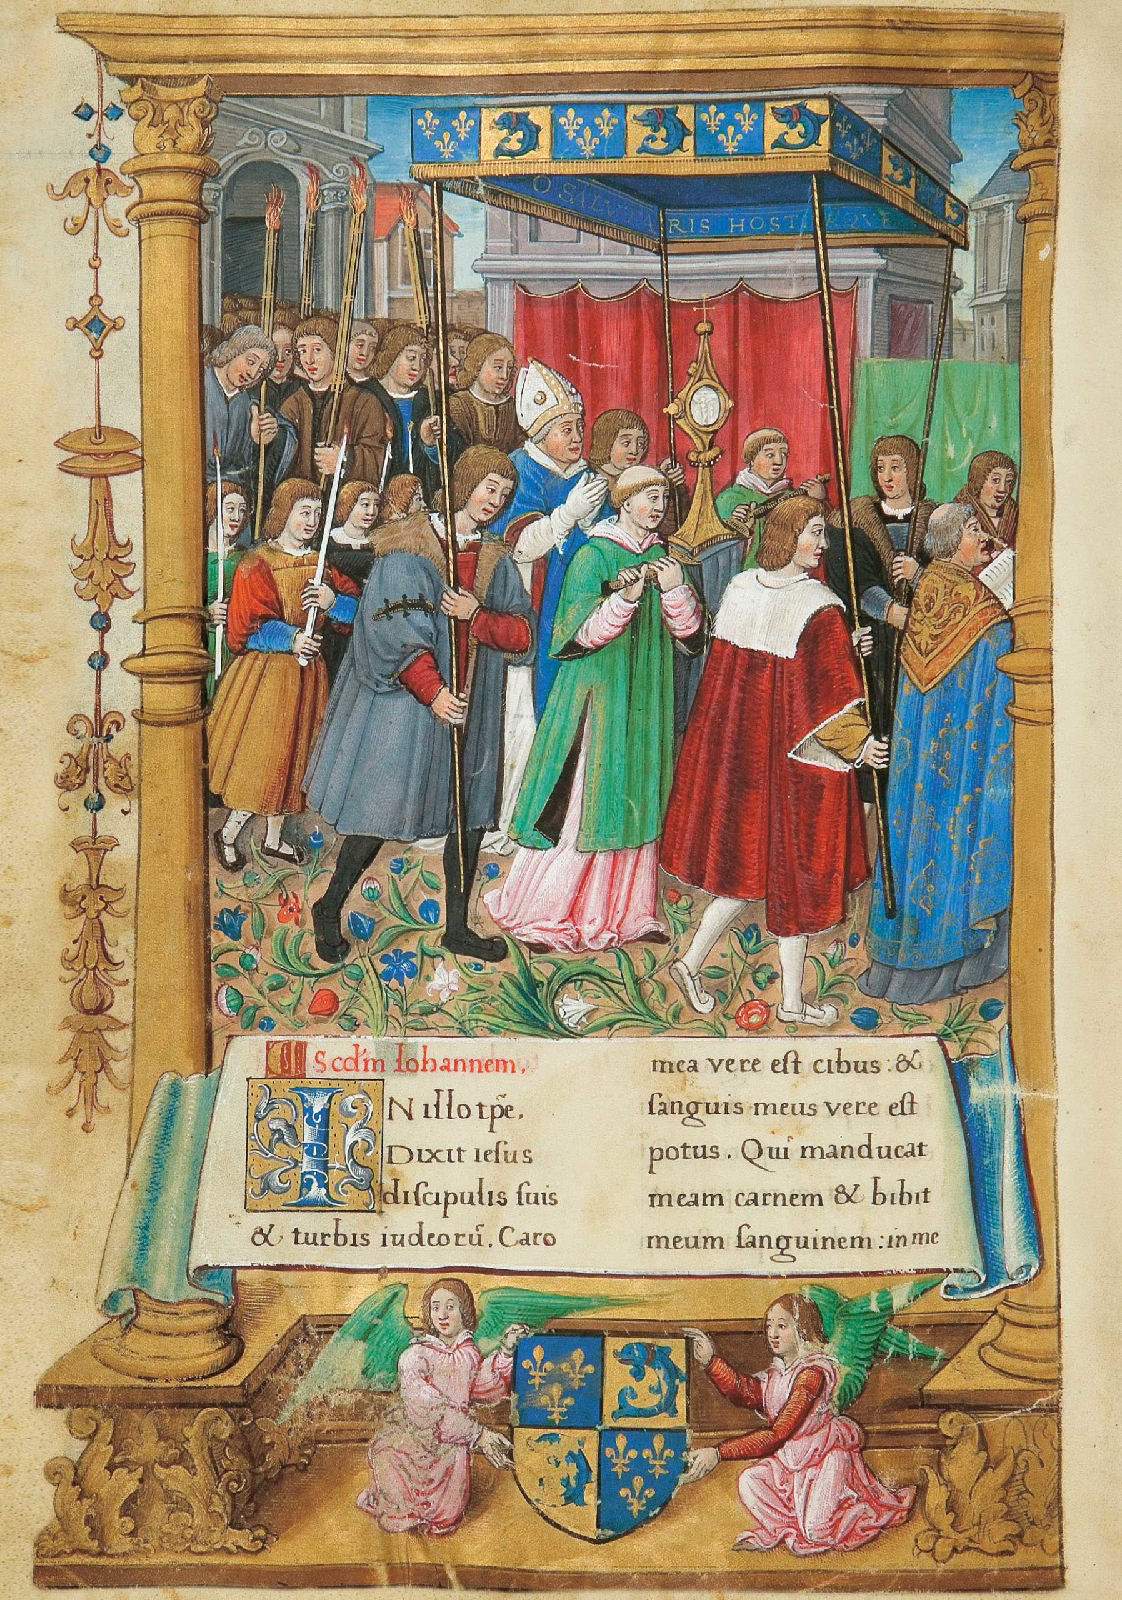 O SALUTARIS HOSTIA QUE
Scd̄m Iohannem.
IN illo tp̄e.
Dixit iesus
discipulis suis
& turbis iudeorū. Caro
mea vere est cibus: &
sanguis meus vere est
potus. Qui manducat
meam carnem & bibit
meum sanguinem: in me